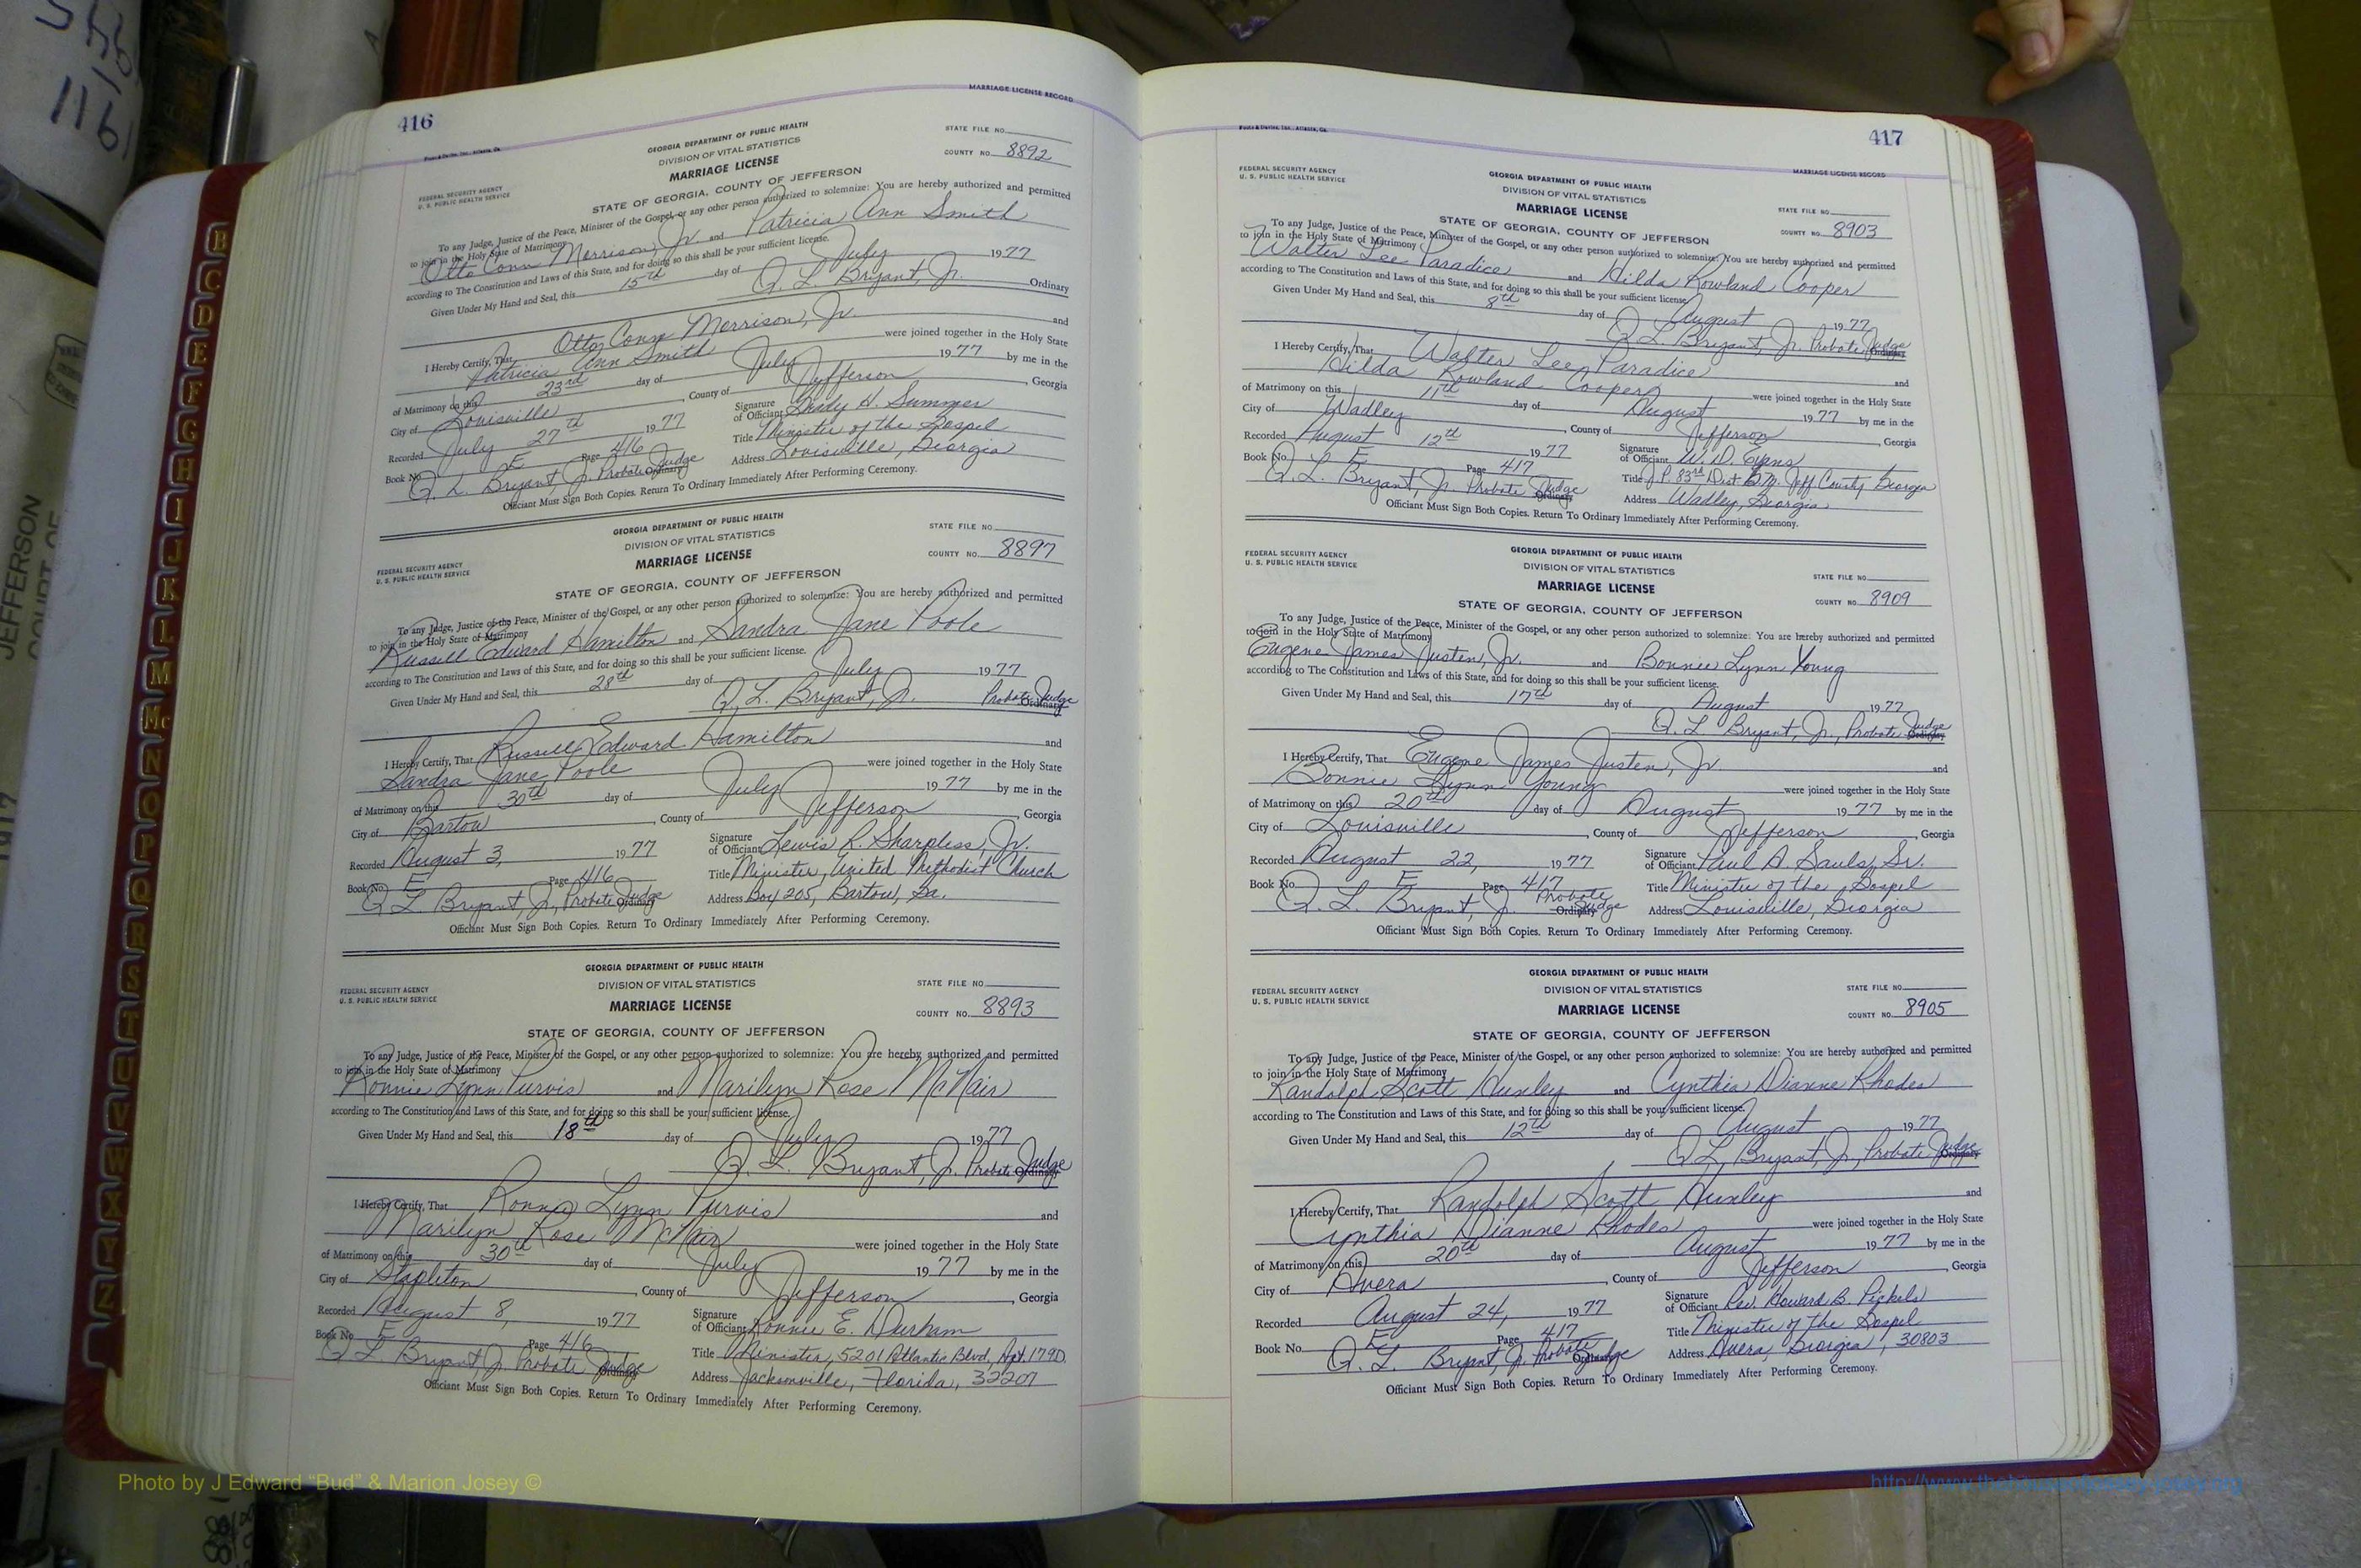 416
MARRIAGE LICENSE RECORD
GEORGIA DEPARTMENT OF PUBLIC HEALTH
DIVISION OF VITAL STATISTICS
MARRIAGE LICENSE
STATE OF GEORGIA, COUNTY OF JEFFERSON
FEDERAL SECURITY AGENCY
U. S. PUBLIC HEALTH SERVICE
STATE FILE NO.
COUNTY NO. 8892
To any Judge, Justice of the Peace, Minister of the Gospel, or any other person authorized to solemnize: You are hereby authorized and permitted
to join in the Holy State of Matrimony
Otto Conn Morrison, Jr. and Patricia Ann Smith
according to The Constitution and Laws of this State, and for doing so this shall be your sufficient license.
Given Under My Hand and Seal, this 15th day of July 1977
Q. L. Bryant, Jr. Ordinary
I Hereby Certify, That Otto Conn Morrison, Jr. and
Patricia Ann Smith were joined together in the Holy State
of Matrimony on this 23rd day of July 1977 by me in the
City of Louisville, County of Jefferson, Georgia
Recorded July 27th 1977 Signature of Officiant H. Summer
Book No. E Page 416 Title Minister of the Gospel
Q. L. Bryant, Jr. Probate Judge Ordinary Address Louisville, Georgia
Officiant Must Sign Both Copies. Return To Ordinary Immediately After Performing Ceremony.
GEORGIA DEPARTMENT OF PUBLIC HEALTH
DIVISION OF VITAL STATISTICS
MARRIAGE LICENSE
STATE OF GEORGIA, COUNTY OF JEFFERSON
FEDERAL SECURITY AGENCY
U. S. PUBLIC HEALTH SERVICE
STATE FILE NO.
COUNTY NO. 8897
To any Judge, Justice of the Peace, Minister of the Gospel, or any other person authorized to solemnize: You are hereby authorized and permitted
to join in the Holy State of Matrimony
Russell Edward Hamilton and Sandra Jane Poole
according to The Constitution and Laws of this State, and for doing so this shall be your sufficient license.
Given Under My Hand and Seal, this 28th day of July 1977
Q. L. Bryant, Jr. Probate Judge Ordinary
I Hereby Certify, That Russell Edward Hamilton and
Sandra Jane Poole were joined together in the Holy State
of Matrimony on this 30th day of July 1977 by me in the
City of Bartow, County of Jefferson, Georgia
Recorded August 3, 1977 Signature of Officiant Lewis R. Sharpless, Jr.
Book No. E Page 416 Title Minister, United Methodist Church
Q. L. Bryant, Jr., Probate Judge Ordinary Address Box 205, Bartow, Ga.
Officiant Must Sign Both Copies. Return To Ordinary Immediately After Performing Ceremony.
GEORGIA DEPARTMENT OF PUBLIC HEALTH
DIVISION OF VITAL STATISTICS
MARRIAGE LICENSE
STATE OF GEORGIA, COUNTY OF JEFFERSON
FEDERAL SECURITY AGENCY
U. S. PUBLIC HEALTH SERVICE
STATE FILE NO.
COUNTY NO. 8893
To any Judge, Justice of the Peace, Minister of the Gospel, or any other person authorized to solemnize: You are hereby authorized and permitted
to join in the Holy State of Matrimony
Ronnie Lynn Purvis and Marilyn Rose McNair
according to The Constitution and Laws of this State, and for doing so this shall be your sufficient license.
Given Under My Hand and Seal, this 18th day of July 1977
Q. L. Bryant, Jr. Probate Judge Ordinary
I Hereby Certify, That Ronnie Lynn Purvis and
Marilyn Rose McNair were joined together in the Holy State
of Matrimony on this 30th day of July 1977 by me in the
City of Stapleton, County of Jefferson, Georgia
Recorded August 8, 1977 Signature of Officiant Ronnie E. Durham
Book No. E Page 416 Title Minister, 5201 Atlantic Blvd, Apt. 179D.
Q. L. Bryant, Jr. Probate Judge Ordinary Address Jacksonville, Florida, 32207
Officiant Must Sign Both Copies. Return To Ordinary Immediately After Performing Ceremony.
417
MARRIAGE LICENSE RECORD
FEDERAL SECURITY AGENCY
U. S. PUBLIC HEALTH SERVICE
GEORGIA DEPARTMENT OF PUBLIC HEALTH
DIVISION OF VITAL STATISTICS
MARRIAGE LICENSE
STATE OF GEORGIA, COUNTY OF JEFFERSON
STATE FILE NO.
COUNTY NO. 8903
To any Judge, Justice of the Peace, Minister of the Gospel, or any other person authorized to solemnize: You are hereby authorized and permitted
to join in the Holy State of Matrimony
Walter Lee Paradice and Hilda Rowland Cooper
according to The Constitution and Laws of this State, and for doing so this shall be your sufficient license.
Given Under My Hand and Seal, this 8th day of August 1977
Q. L. Bryant, Jr. Probate Judge Ordinary
I Hereby Certify, That Walter Lee Paradice and
Hilda Rowland Cooper were joined together in the Holy State
of Matrimony on this 11th day of August 1977 by me in the
City of Wadley, County of Jefferson, Georgia
Recorded August 12th 1977 Signature of Officiant W. D. Evans
Book No. E Page 417 Title J. P. 83rd Dist G.M. Jeff County Georgia
Q. L. Bryant, Jr. Probate Judge Ordinary Address Wadley, Georgia
Officiant Must Sign Both Copies. Return To Ordinary Immediately After Performing Ceremony.
FEDERAL SECURITY AGENCY
U. S. PUBLIC HEALTH SERVICE
GEORGIA DEPARTMENT OF PUBLIC HEALTH
DIVISION OF VITAL STATISTICS
MARRIAGE LICENSE
STATE OF GEORGIA, COUNTY OF JEFFERSON
STATE FILE NO.
COUNTY NO. 8909
To any Judge, Justice of the Peace, Minister of the Gospel, or any other person authorized to solemnize: You are hereby authorized and permitted
to join in the Holy State of Matrimony
Eugene James Justen, Jr. and Bonnie Lynn Young
according to The Constitution and Laws of this State, and for doing so this shall be your sufficient license.
Given Under My Hand and Seal, this 17th day of August 1977
Q. L. Bryant, Jr., Probate Judge Ordinary
I Hereby Certify, That Eugene James Justen, Jr. and
Bonnie Lynn Young were joined together in the Holy State
of Matrimony on this 20th day of August 1977 by me in the
City of Louisville, County of Jefferson, Georgia
Recorded August 22, 1977 Signature of Officiant Paul A. Sauls, Sr.
Book No. E Page 417 Title Minister of the Gospel
Q. L. Bryant, Jr. Probate Judge Ordinary Address Louisville, Georgia
Officiant Must Sign Both Copies. Return To Ordinary Immediately After Performing Ceremony.
GEORGIA DEPARTMENT OF PUBLIC HEALTH
DIVISION OF VITAL STATISTICS
MARRIAGE LICENSE
STATE OF GEORGIA, COUNTY OF JEFFERSON
FEDERAL SECURITY AGENCY
U. S. PUBLIC HEALTH SERVICE
STATE FILE NO.
COUNTY NO. 8905
To any Judge, Justice of the Peace, Minister of the Gospel, or any other person authorized to solemnize: You are hereby authorized and permitted
to join in the Holy State of Matrimony
Randolph Scott Huxley and Cynthia Dianne Rhodes
according to The Constitution and Laws of this State, and for doing so this shall be your sufficient license.
Given Under My Hand and Seal, this 12th day of August 1977
Q. L. Bryant, Jr., Probate Judge Ordinary
I Hereby Certify, That Randolph Scott Huxley and
Cynthia Dianne Rhodes were joined together in the Holy State
of Matrimony on this 20th day of August 1977 by me in the
City of Avera, County of Jefferson, Georgia
Recorded August 24, 1977 Signature of Officiant Rev. Howard B. Pickels
Book No. E Page 417 Title Minister of the Gospel
Q. L. Bryant, Jr. Probate Judge Ordinary Address Avera, Georgia, 30803
Officiant Must Sign Both Copies. Return To Ordinary Immediately After Performing Ceremony.
B
C
D
E
F
G
H
I
J
K
L
M
Mc
N
O
P
Q
R
S
T
U
V
W
X
Y
Z
JEFFERSON
COURT OF
Photo by J Edward “Bud” & Marion Josey ©